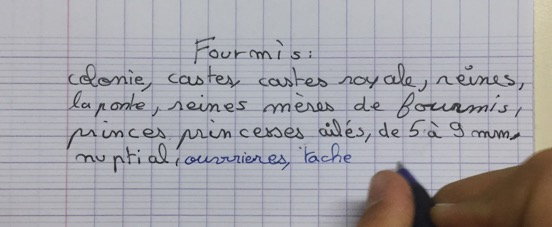 Fourmis:
colonie, castes castes royale, reines,
la ponte, reines mères de fourmis,
princes princesses ailés, de 5 à 9 mm,
nuptial, ouvrieres, tache